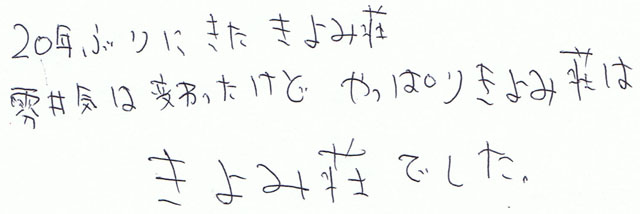 20年ぶりにきたきよみ荘
雰囲気は変わったけど やっぱりきよみ荘は
きよみ荘でした。